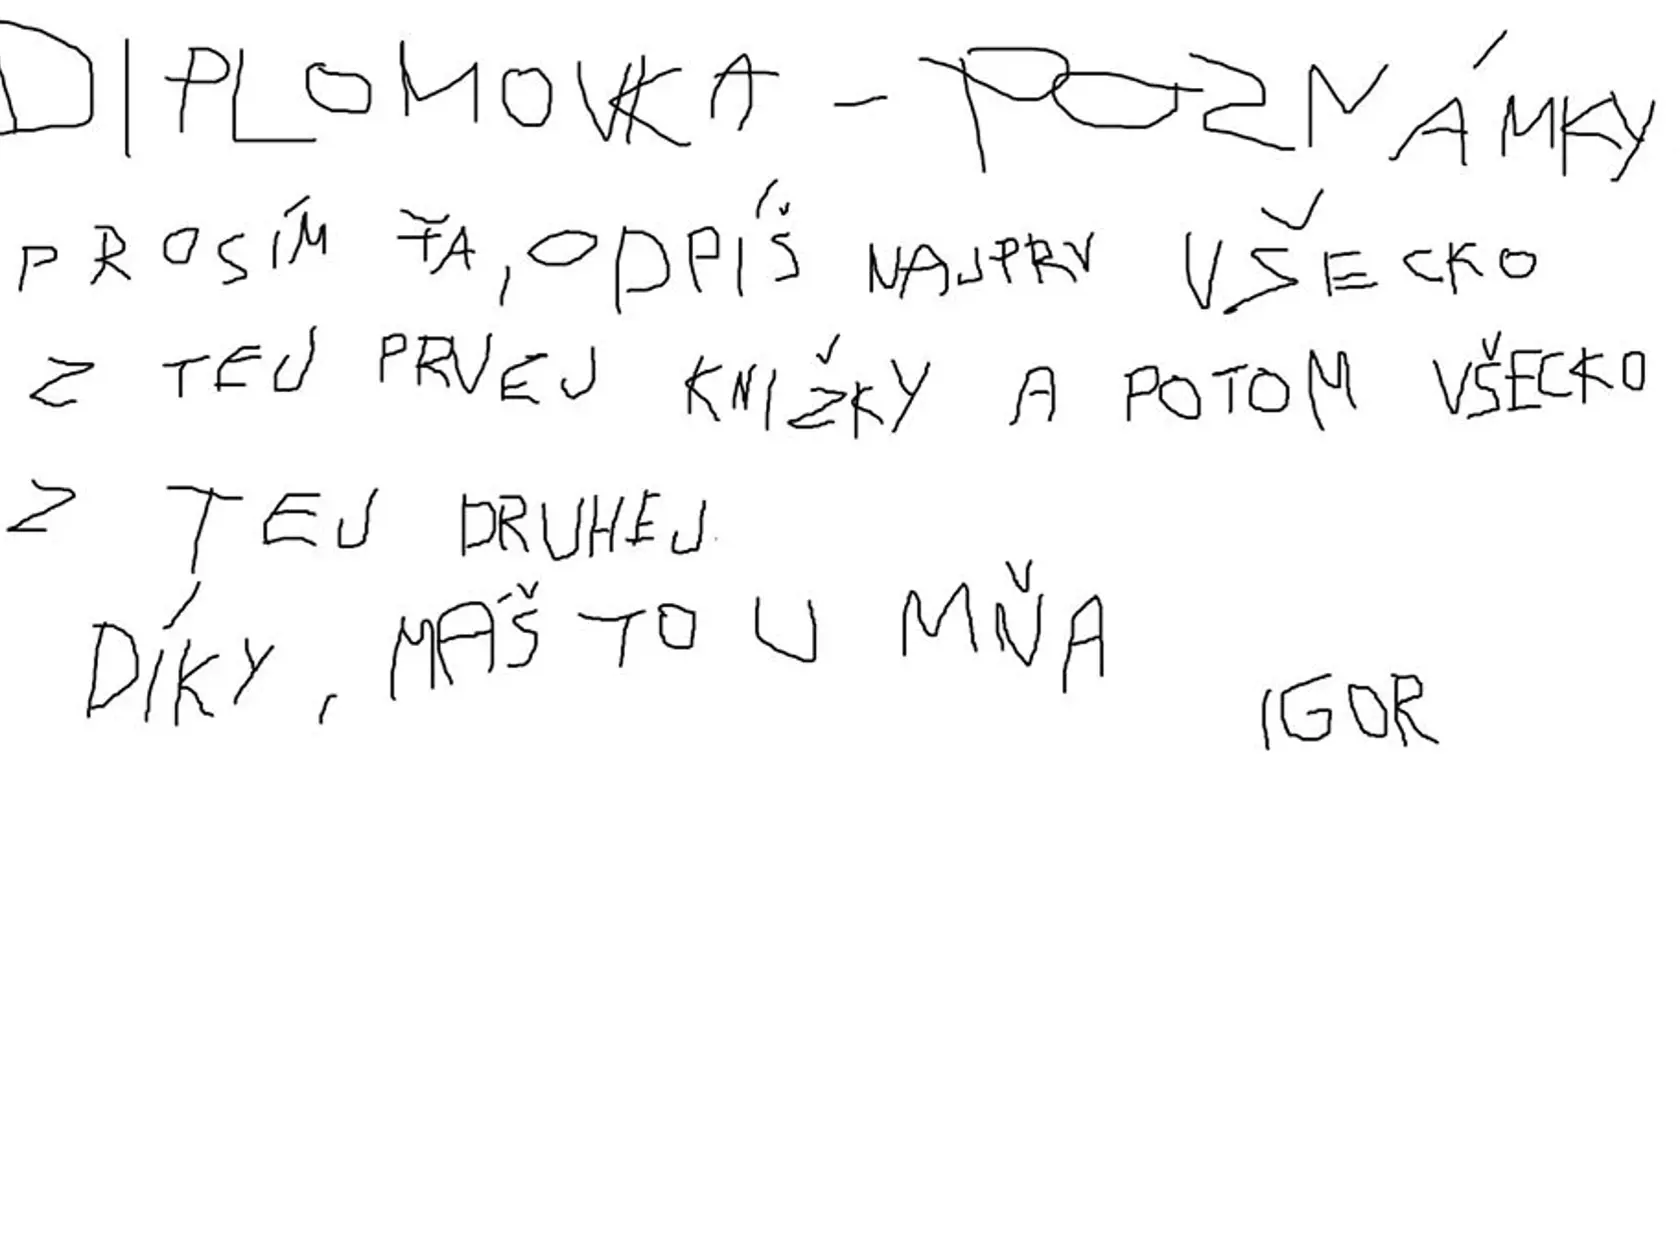 DIPLOMOVKA - POZNÁMKY
PROSÍM ŤA, ODPÍŠ NAJPRV VŠECKO
Z TEJ PRVEJ KNIŽKY A POTOM VŠECKO
Z TEJ DRUHEJ
DÍKY, MÁŠ TO U MŇA
IGOR